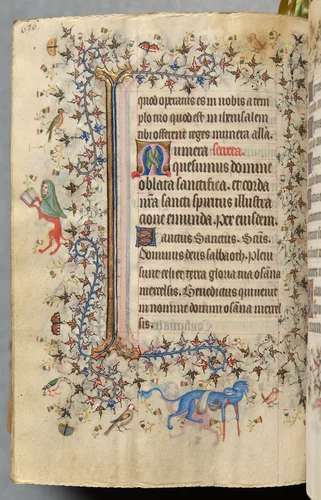 quod operatus es in nobis a tem
plo tuo quod est in iherusalem
tibi offerent reges munera alla.
Munera Secreta.
quesumus domine
oblata sanctifica. et corda
nr̄a sancti spiritus illustra
cione emunda. Per eiusdem.
Sanctus Sanctus. Sc̄us.
Dominus deus sabaoth. Pleni
sunt celi et terra gloria tua osāna
in excelsis. Benedictus qui uenit
in nomine domini osāna in excel
sis.